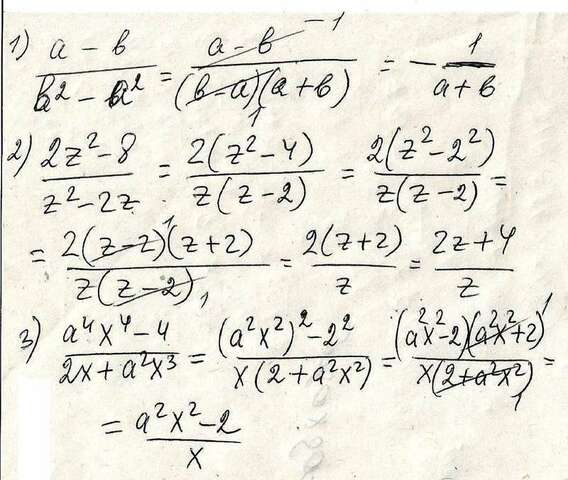 1) (a - b)/(b² - a²) = (a - b)/((b - a)(a + b)) -1 1 = - 1/(a + b)
2) (2z² - 8)/(z² - 2z) = 2(z² - 4)/(z(z - 2)) = 2(z² - 2²)/(z(z - 2)) =
= 2(z - z)(z + 2)/(z(z - 2)) 1 1 = 2(z + 2)/z = (2z + 4)/z
3) (a⁴x⁴ - 4)/(2x + a²x³) = ((a²x²)² - 2²)/(x(2 + a²x²)) = (a²x² - 2)(a²x² + 2)/(x(2 + a²x²)) 1 1 =
= (a²x² - 2)/x